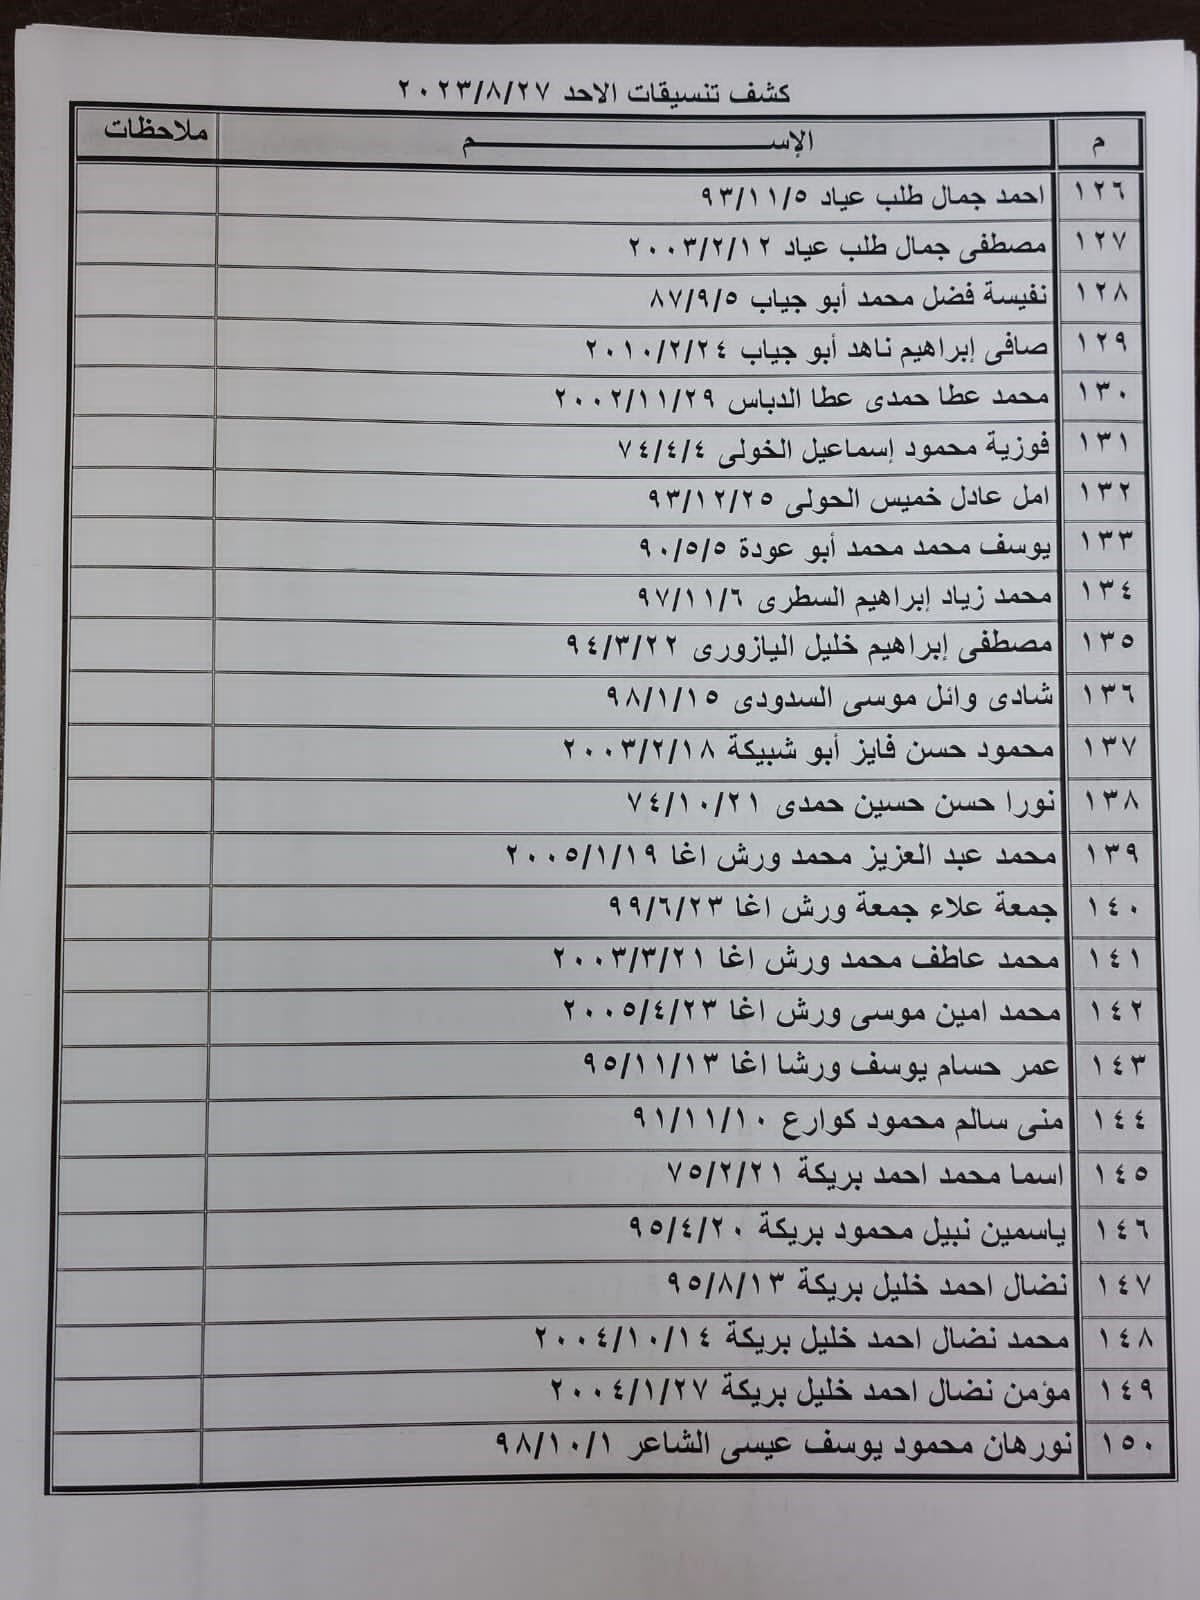 كشف تنسيقات الاحد ٢٠٢٣/٨/٢٧
م الإســـــــــــــم ملاحظات
١٢٦ احمد جمال طلب عياد ٩٣/١١/٥
١٢٧ مصطفى جمال طلب عياد ٢٠٠٣/٢/١٢
١٢٨ نفيسة فضل محمد أبو جياب ٨٧/٩/٥
١٢٩ صافى إبراهيم ناهد أبو جياب ٢٠١٠/٢/٢٤
١٣٠ محمد عطا حمدى عطا الدباس ٢٠٠٢/١١/٢٩
١٣١ فوزية محمود إسماعيل الخولى ٧٤/٤/٤
١٣٢ امل عادل خميس الحولى ٩٣/١٢/٢٥
١٣٣ يوسف محمد محمد أبو عودة ٩٠/٥/٥
١٣٤ محمد زياد إبراهيم السطرى ٩٧/١١/٦
١٣٥ مصطفى إبراهيم خليل اليازورى ٩٤/٣/٢٢
١٣٦ شادى وائل موسى السدودى ٩٨/١/١٥
١٣٧ محمود حسن فايز أبو شبيكة ٢٠٠٣/٢/١٨
١٣٨ نورا حسن حسين حمدى ٧٤/١٠/٢١
١٣٩ محمد عبد العزيز محمد ورش اغا ٢٠٠٥/١/١٩
١٤٠ جمعة علاء جمعة ورش اغا ٩٩/٦/٢٣
١٤١ محمد عاطف محمد ورش اغا ٢٠٠٣/٣/٢١
١٤٢ محمد امين موسى ورش اغا ٢٠٠٥/٤/٢٣
١٤٣ عمر حسام يوسف ورشا اغا ٩٥/١١/١٣
١٤٤ منى سالم محمود كوارع ٩١/١١/١٠
١٤٥ اسما محمد احمد بريكة ٧٥/٢/٢١
١٤٦ ياسمين نبيل محمود بريكة ٩٥/٤/٢٠
١٤٧ نضال احمد خليل بريكة ٩٥/٨/١٣
١٤٨ محمد نضال احمد خليل بريكة ٢٠٠٤/١٠/١٤
١٤٩ مؤمن نضال احمد خليل بريكة ٢٠٠٤/١/٢٧
١٥٠ نورهان محمود يوسف عيسى الشاعر ٩٨/١٠/١